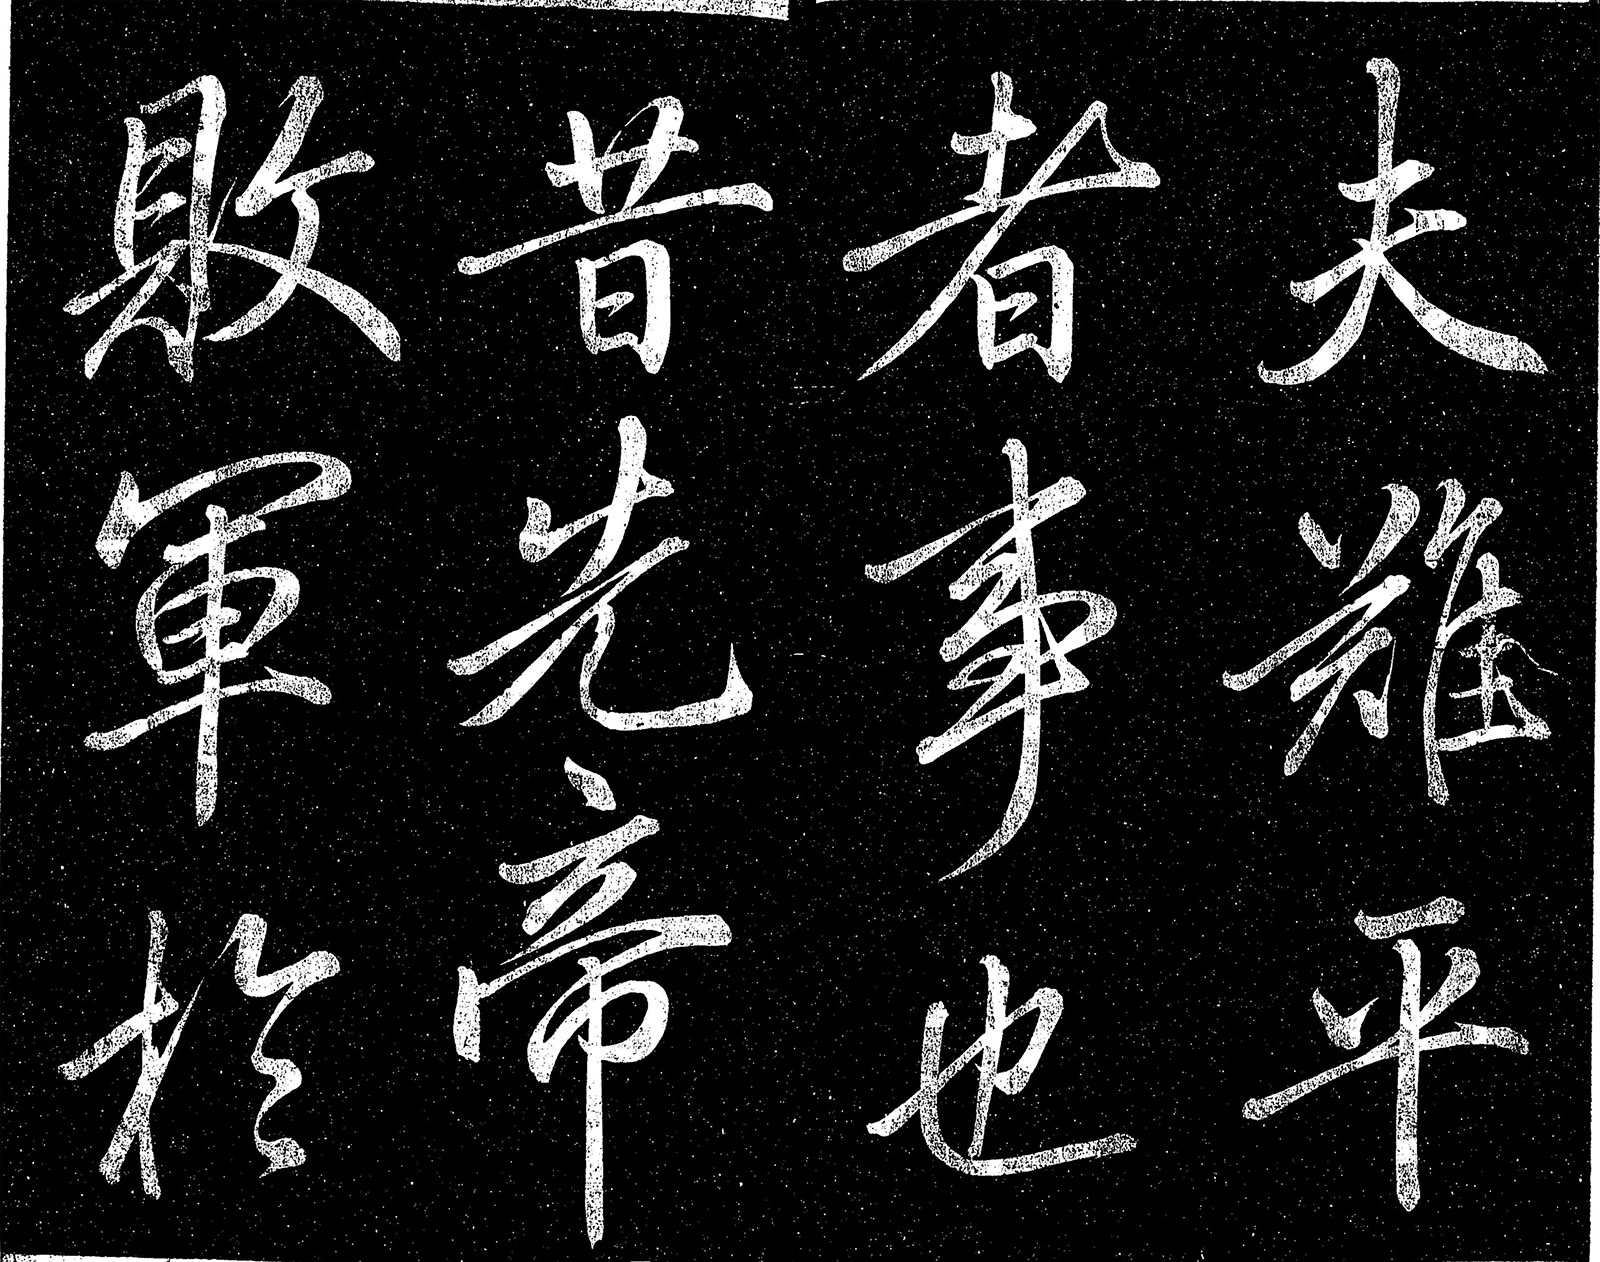 夫難平
者事也
昔先帝
敗軍於